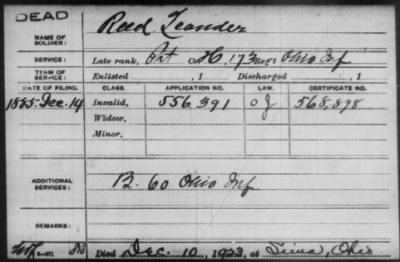 DEAD
NAME OF SOLDIER: Reed Leander
SERVICE: Late rank, Prt Co. H, 173 Reg't Ohio Inf
TERM OF SERVICE: Enlisted , 1 Discharged , 1
DATE OF FILING. CLASS. APPLICATION NO. LAW. CERTIFICATE NO.
1885-Dec. 14 Invalid, 556.391 568,898
Widow,
Minor,
ADDITIONAL SERVICES: B. 60 Ohio Inf
REMARKS:
Died Dec. 10, 1923, at Lima, Ohio